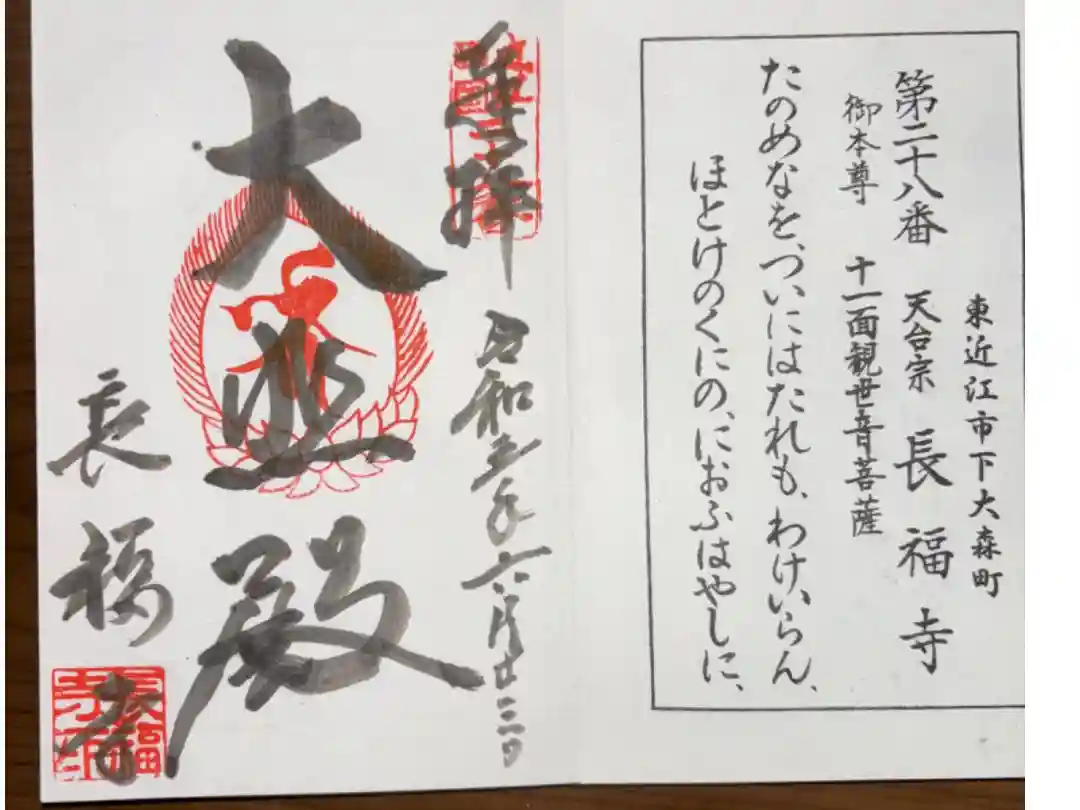 東近江市下大森町
第二十八番 天台宗 長福寺
御本尊 十一面観世音菩薩
たのめなを、ついにはたれも、わけいらん、
ほとけのくにの、におふはやしに、
奉拝 令和五年六月廿三日
大悲殿
長福寺
長福寺印